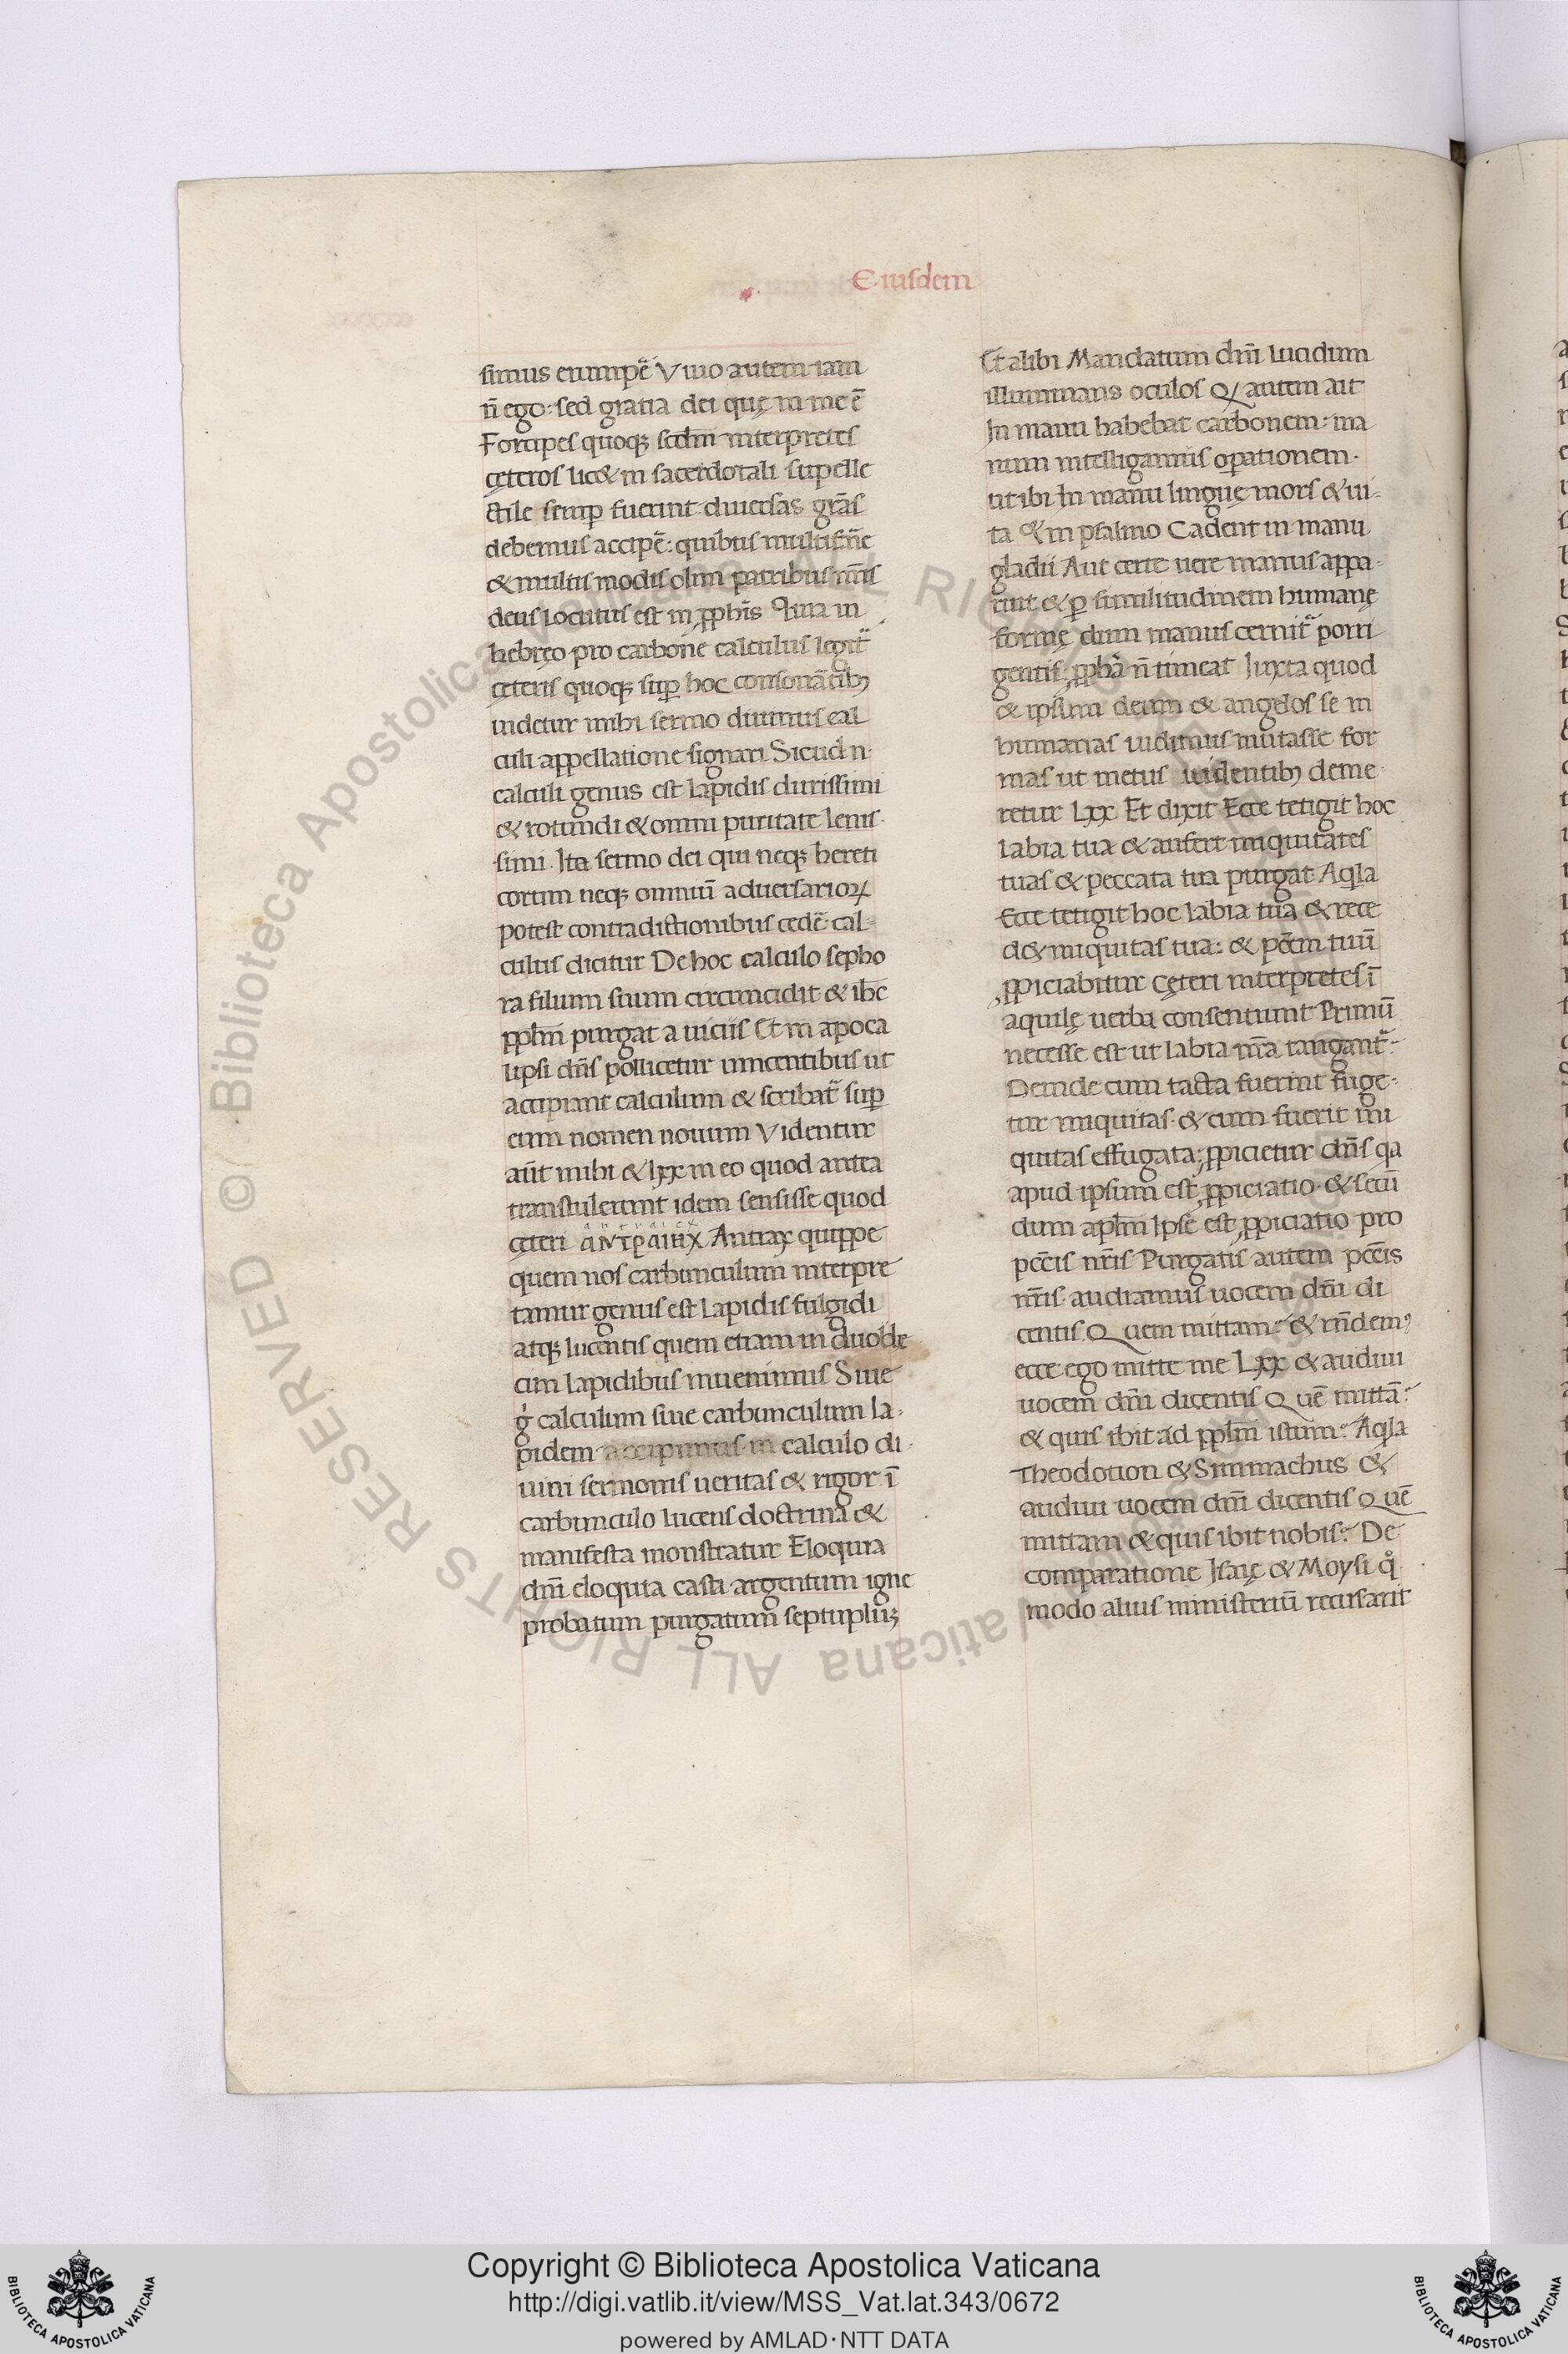 Eiusdem
simus erumpē Viuo autem iam
n̄ ego: sed gratia dei quę in me ē
Forcipes quoqꝫ scdm̄ interpretes
cęteros lic& in sacerdotali supelle
ctile semꝑ fuerint diuersas grās
debemus accipē: quibus multifr̄ie
& multis modis olim patribus nr̄is
deus locutus est in ꝓphīs
hebręo pro carbone calculus legit̄
cęteris quoqꝫ suꝑ hoc consonātibꝫ
uidetur mihi sermo diuinus cal
culi appellatione signari Sicud n·
calculi genus est lapidis durissimi
& rotundi & omni puritate lenis·
simi. Ita sermo dei qui neqꝫ hereti
corum neqꝫ omniū aduersarioꝝ
potest contradictionibus cedē cal-
culus dicitur De hoc calculo sepho
ra filium suum circumcidit & ihc̄
pplm̄ purgat a uiciis Et in apoca
lipsi dn̄s pollicetur uincentibus ut
accipiant calculum & scribat̄ suꝑ
eum nomen nouum Videntur
aūt mihi & lxx in eo quod antea
transtulerunt idem sensisse quod
cęteri Antrax quippe
quem nos carbunculum interpre
tamur genus est lapidis fulgidi
atqꝫ lucentis quem etiam in duode
cim lapidibus inuenimus Siue
g̊ calculum siue carbunculum la-
pidem accipimus in calculo di-
uini sermonis ueritas & rigor ī
carbunculo lucens doctrina &
manifesta monstratur Eloquia
dn̄i eloquia casta argentum igne
probatum purgatum septuplūꝫ
Et alibi Mandatum dn̄i lucidum
illuminans oculos Qꝫ autem ait
In manu habebat carbonem: ma
num intelligamus oꝑationem·
ut ibi In manu linguę mors & ui-
ta & in psalmo Cadent in manu
gladii Aut certe uere manus appa-
ruit & ꝑ similitudinem humanę
formę dum manus cernit̄ porri
gentis: ꝓphā n̄ timeat Iuxta quod
& ipsum deum & angelos se in
humanas uidimus mutasse for
mas ut metus uidentibꝫ deme
retur Lxx Et dixit Ecce tetigit hoc
labia tua & aufert iniquitates
tuas & peccata tua purgat Aqla
Ecce tetigit hoc labia tua & rece
d& iniquitas tua: & pc̄cm tuū
ꝓpiciabitur Cęteri interpretes ī
aquilę uerba consentiunt Primū
necesse est ut labia nr̄a tangant̄:
Deinde cum tacta fuerint fuge-
tur iniquitas· & cum fuerit ini
quitas effugata: ꝓpicietur dn̄s qa
apud ipsum est ꝓpiciatio· & secū
dum aplm̄ Ipse est ꝓpiciatio pro
pccīs nr̄is Purgatis autem pccīs
nr̄is audiamus uocem dn̄i di
centis Quem mittam: & rn̄dem?
ecce ego mitte me Lxx & audiui
uocem dn̄i dicentis Quē mittā:
& quis ibit ad pplm̄ istum: Aqla
Theodotion & Simmachus &
audiui uocem dn̄i dicentis Quē
mittam & quis ibit nobis: De
comparatione Isaię & Moysi q̊
modo alius ministeriū recusarit
Copyright © Biblioteca Apostolica Vaticana
http://digi.vatlib.it/view/MSS_Vat.lat.343/0672
powered by AMLAD·NTT DATA
BIBLIOTECA APOSTOLICA VATICANA
BIBLIOTECA APOSTOLICA VATICANA
© Biblioteca Apostolica Vaticana ALL RIGHTS RESERVED